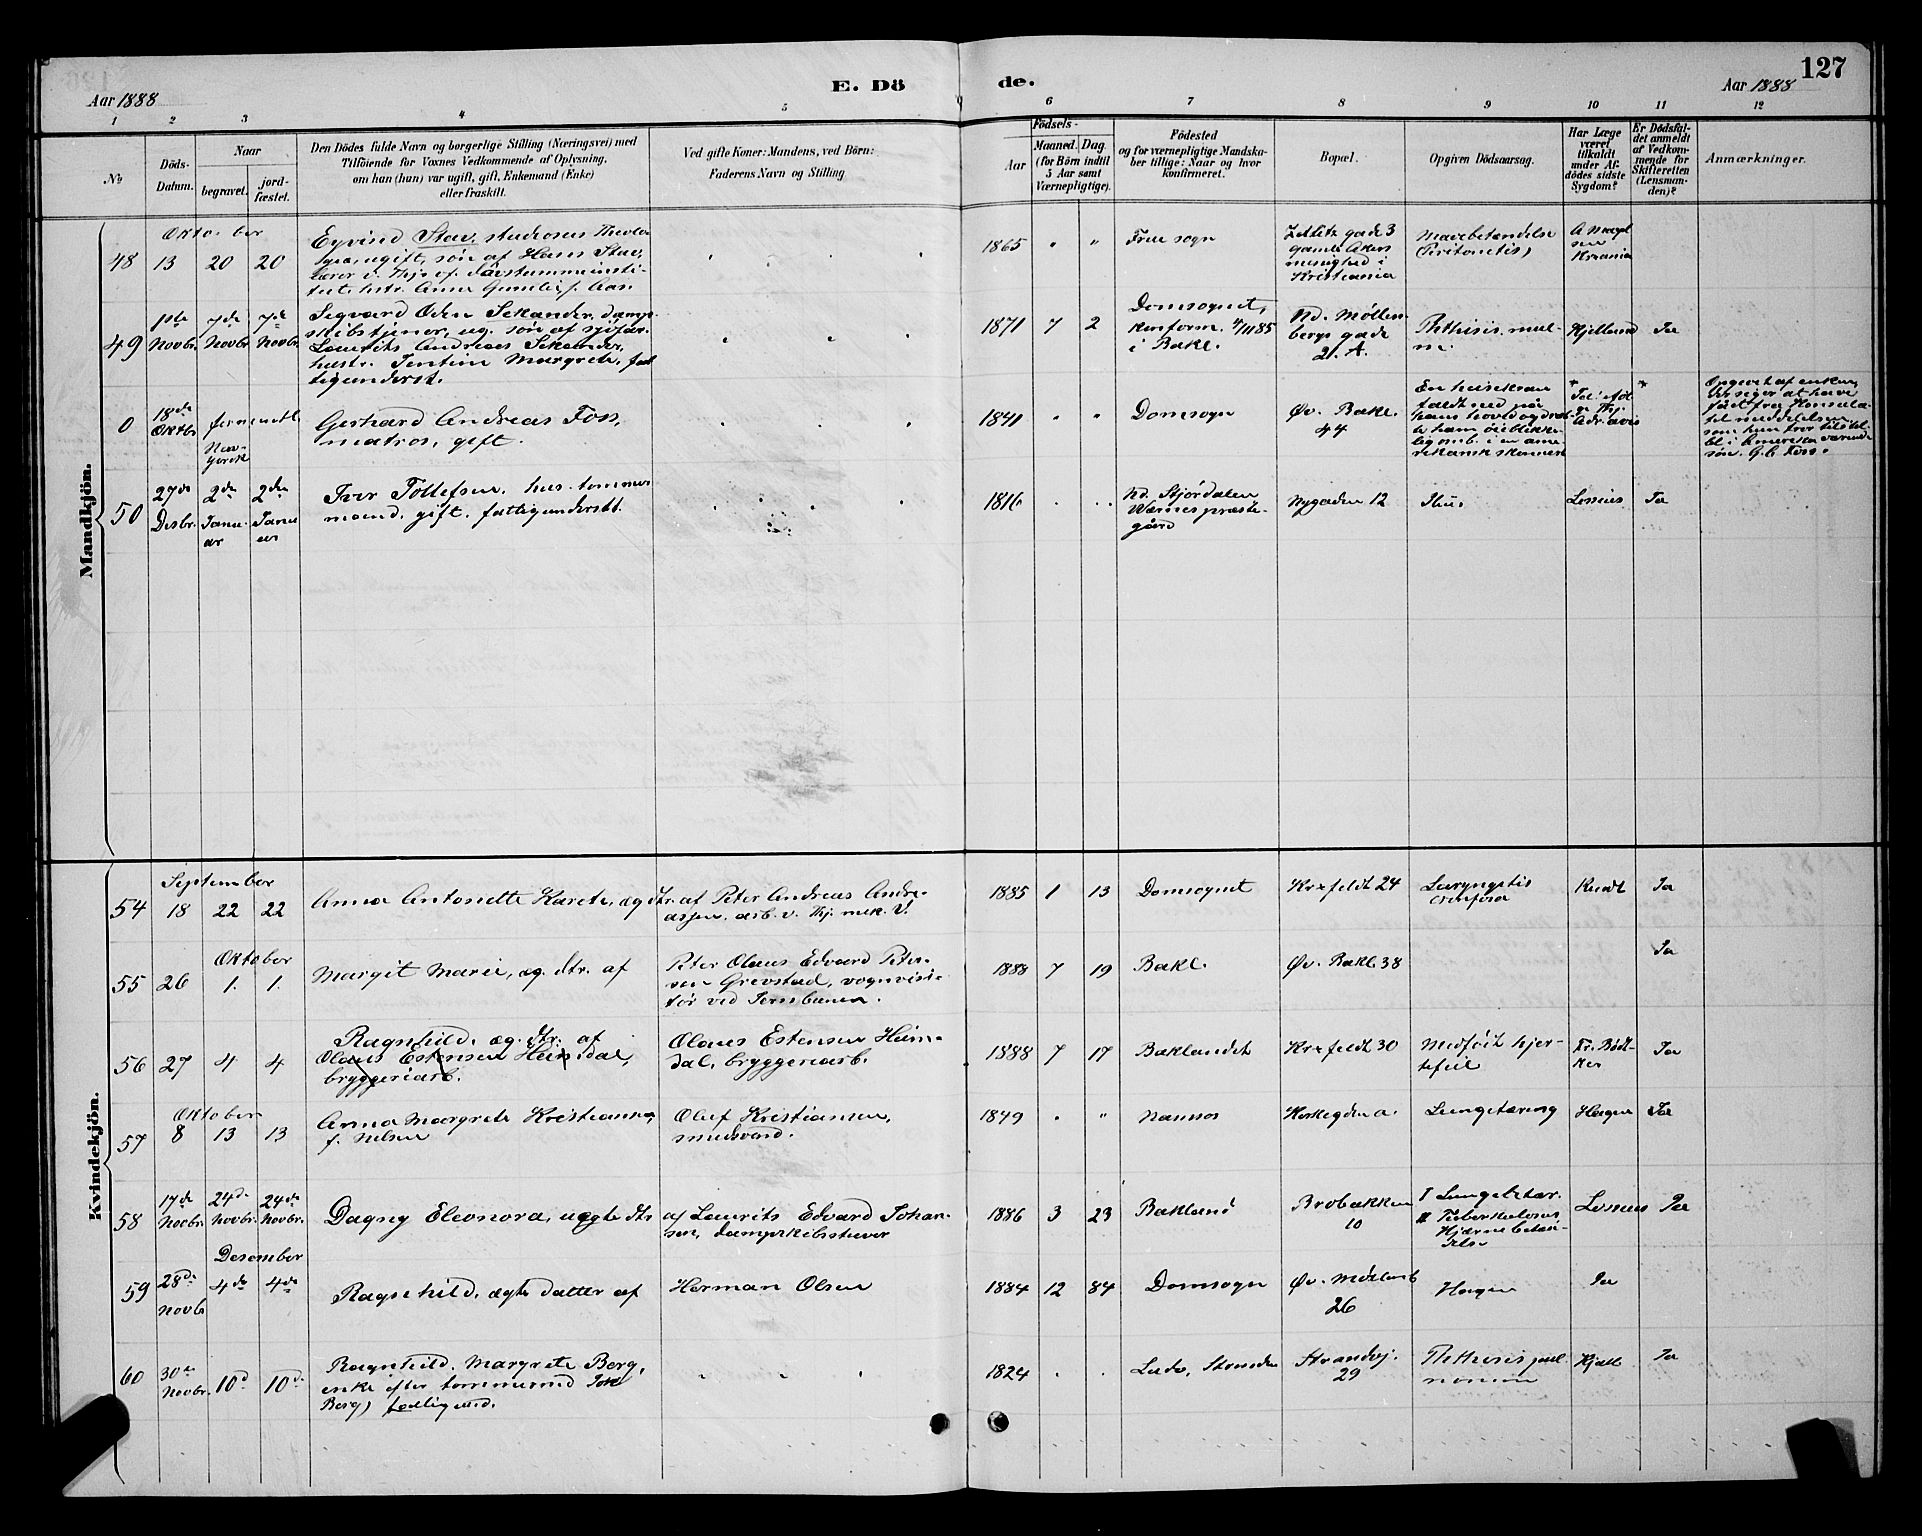 Aar 1888
E. Dö
de.
Aar 1888
127
1 2 3 4 5 6 7 8 9 10 11 12
№
Döds-
Datum.
Naar
begravet.
jord-
fæstet.
Den Dödes fulde Navn og borgerlige Stilling (Næringsvei) med
Tilföiende for Voxnes Vedkommende af Oplysning,
om han (hun) var ugift, gift, Enkemand (Enke)
eller fraskilt.
Ved gifte Koner: Mandens, ved Börn:
Faderens Navn og Stilling
Födsels-
Aar
Maaned.
Dag.
(for Börn indtil
5 Aar samt
Værnepligtige).
Födested
og for værnepligtige Mandska-
ber tillige: Naar og hvor
konfirmeret.
Bopæl.
Opgiven Dödsaarsag.
Har Læge
været
tilkaldt
under Af-
dödes sidste
Sygdom?
Er Dödsfal-
det anmeldt
af Vedkom-
mende for
Skifteretten
(Lensman-
den)?
Anmærkninger.
Mandkjön.
Oktober
48 13 20 20
Eyvind Stav, studiosus Theolo-
giæ, ugift, søn af Hans Stav,
lærer v. Thjs. og døvstummeinsti-
tut, hstr. Anna
1865
Frue sogn
gade 3
gamle Akers
menighed i
Kristiania
Mavebetændelse
(Peritonetis)
49
1ste Novbr.
7de Novbr.
7de Novbr.
Sigvard Oden Sekander, damp-
skibstjener, ug. søn af sjøfar.
Laurits Andreas Sekander,
hustr. Jentine Margrete, fat-
tigunderst.
1871 7 2
Domsognet,
konform. 4/11 85
i Bakl.
Nd. Møllen-
bergs gade
21. A.
Phthisis. mul-
m.
Kjelland
Ja
0
18de Oktbr.
New-
York
Gerhard Andreas Foss,
matros, gift.
1841
Domsogn
Øv. Bakl.
44
En heisekran
faldt ned på
hans hoved og dræb-
te ham øieblikke-
lig omb. i en ame-
rikansk skonnert
50
27de Desbr.
2den Janu-
ar
2den Janu-
ar
Iver Tollefsen, hus-tømmer-
mand, gift. fattigunderstt.
1816
Nd. Stjørdalen
Værnes præste-
gård
Nygaden 12
Lossius
Ja
Kvindekjön.
September
54 18 22 22
Anna Antonette Karete, æg dtr. af Peter Andreas Andre-
assen, arb. v. Thj. mek. V.
1885 1 13
Domsognet
Krxfeldt 24
Laryngitis
crouposa
Kundt
Ja
Oktober
55 26 1. 1.
Margit Marie, æg. dtr. af
Peter Olaus Edvard Peter-
sen Grevstad, vognvisi-
tør ved Jernbanen.
1888 7 19
Bakl.
Øv. Bakl. 38
Ja
56 27 4 4
Ragnhild, æg. dtr. af
Olaus Estensen Heimdal,
bryggeriarb.
Olaus Estensen Heim-
dal, bryggeriarb.
1888 7 17
Baklandet
Krxfeldt 30
Medfødt hjer-
tefeil
Fr. Bødt-
ker
Ja
Oktober
57 8 13 13
Anna Margrete Kristiansen,
f. Nelsen
Oluf Kristiansen,
smedsvend.
1849
Namsos
Kirkegden a.
Lungetæring
Hagen
Ja
58
17de Novbr.
24de Novbr.
24de Novbr.
Dagny Eleonora, uægte dtr
af Laurits Edvard Johan-
sen, dampskibsstuer
1886 3 23
Bakland
Brobakken
10
I Lungebetær.
II Tuberkuløs
Hjærnebetæn-
delse
Lossius
Ja
Desember
59
28de Novbr
4de
4de
Ragnhild, ægte datter af
Herman Olsen
1884 12 84
Domsogn
Øv. Møllenb
26
Hagen
Ja
60
30te Novbr.
10d
10d
Ragnhild Margrete Berg,
enke efter tømmermd Joh.
Berg, fattigund.
1824
Lade, Strinden
Strandvj.
29
Phthisis pul-
monum
Kjell
Ja